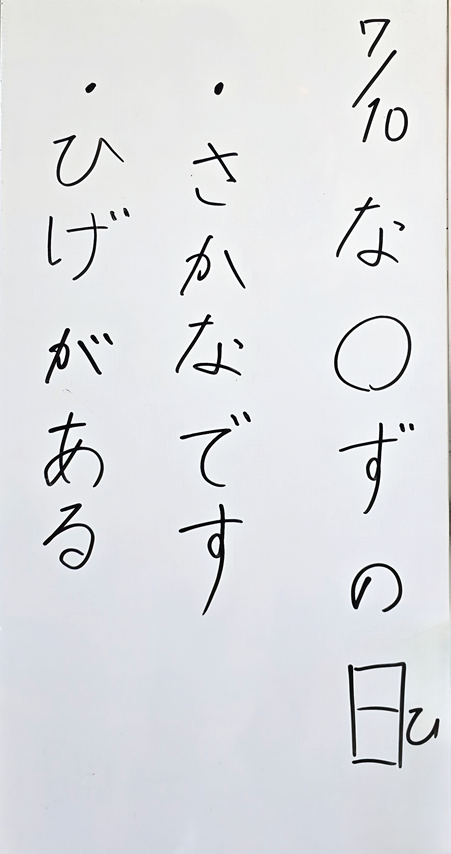 7/10 な○ずの日ひ
・さかなです
・ひげがある